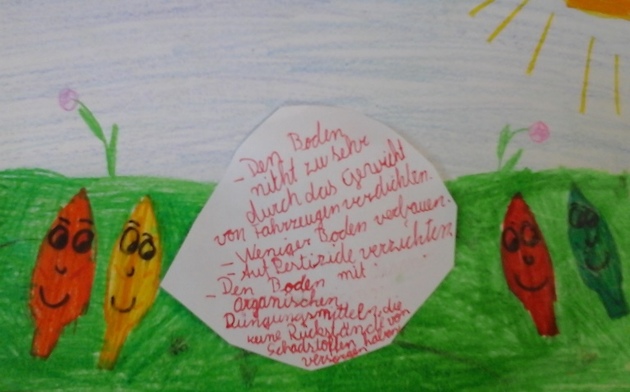 - Den Boden
nicht zu sehr
durch das Gewicht
von Fahrzeugen verdichten.
- Weniger Boden verbauen.
- Auf Pestizide verzichten
- Den Boden mit
organischen
Düngungsmitteln, die
keine Rückstände von
Schadstoffen haben,
versorgen